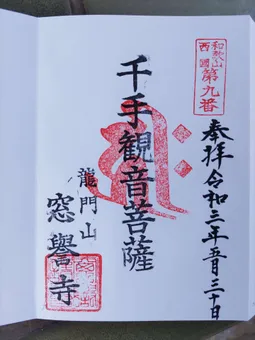 和歌山
西國
第九番
奉拝 令和三年五月三十日
千手観音菩薩
龍門山
窓譽寺